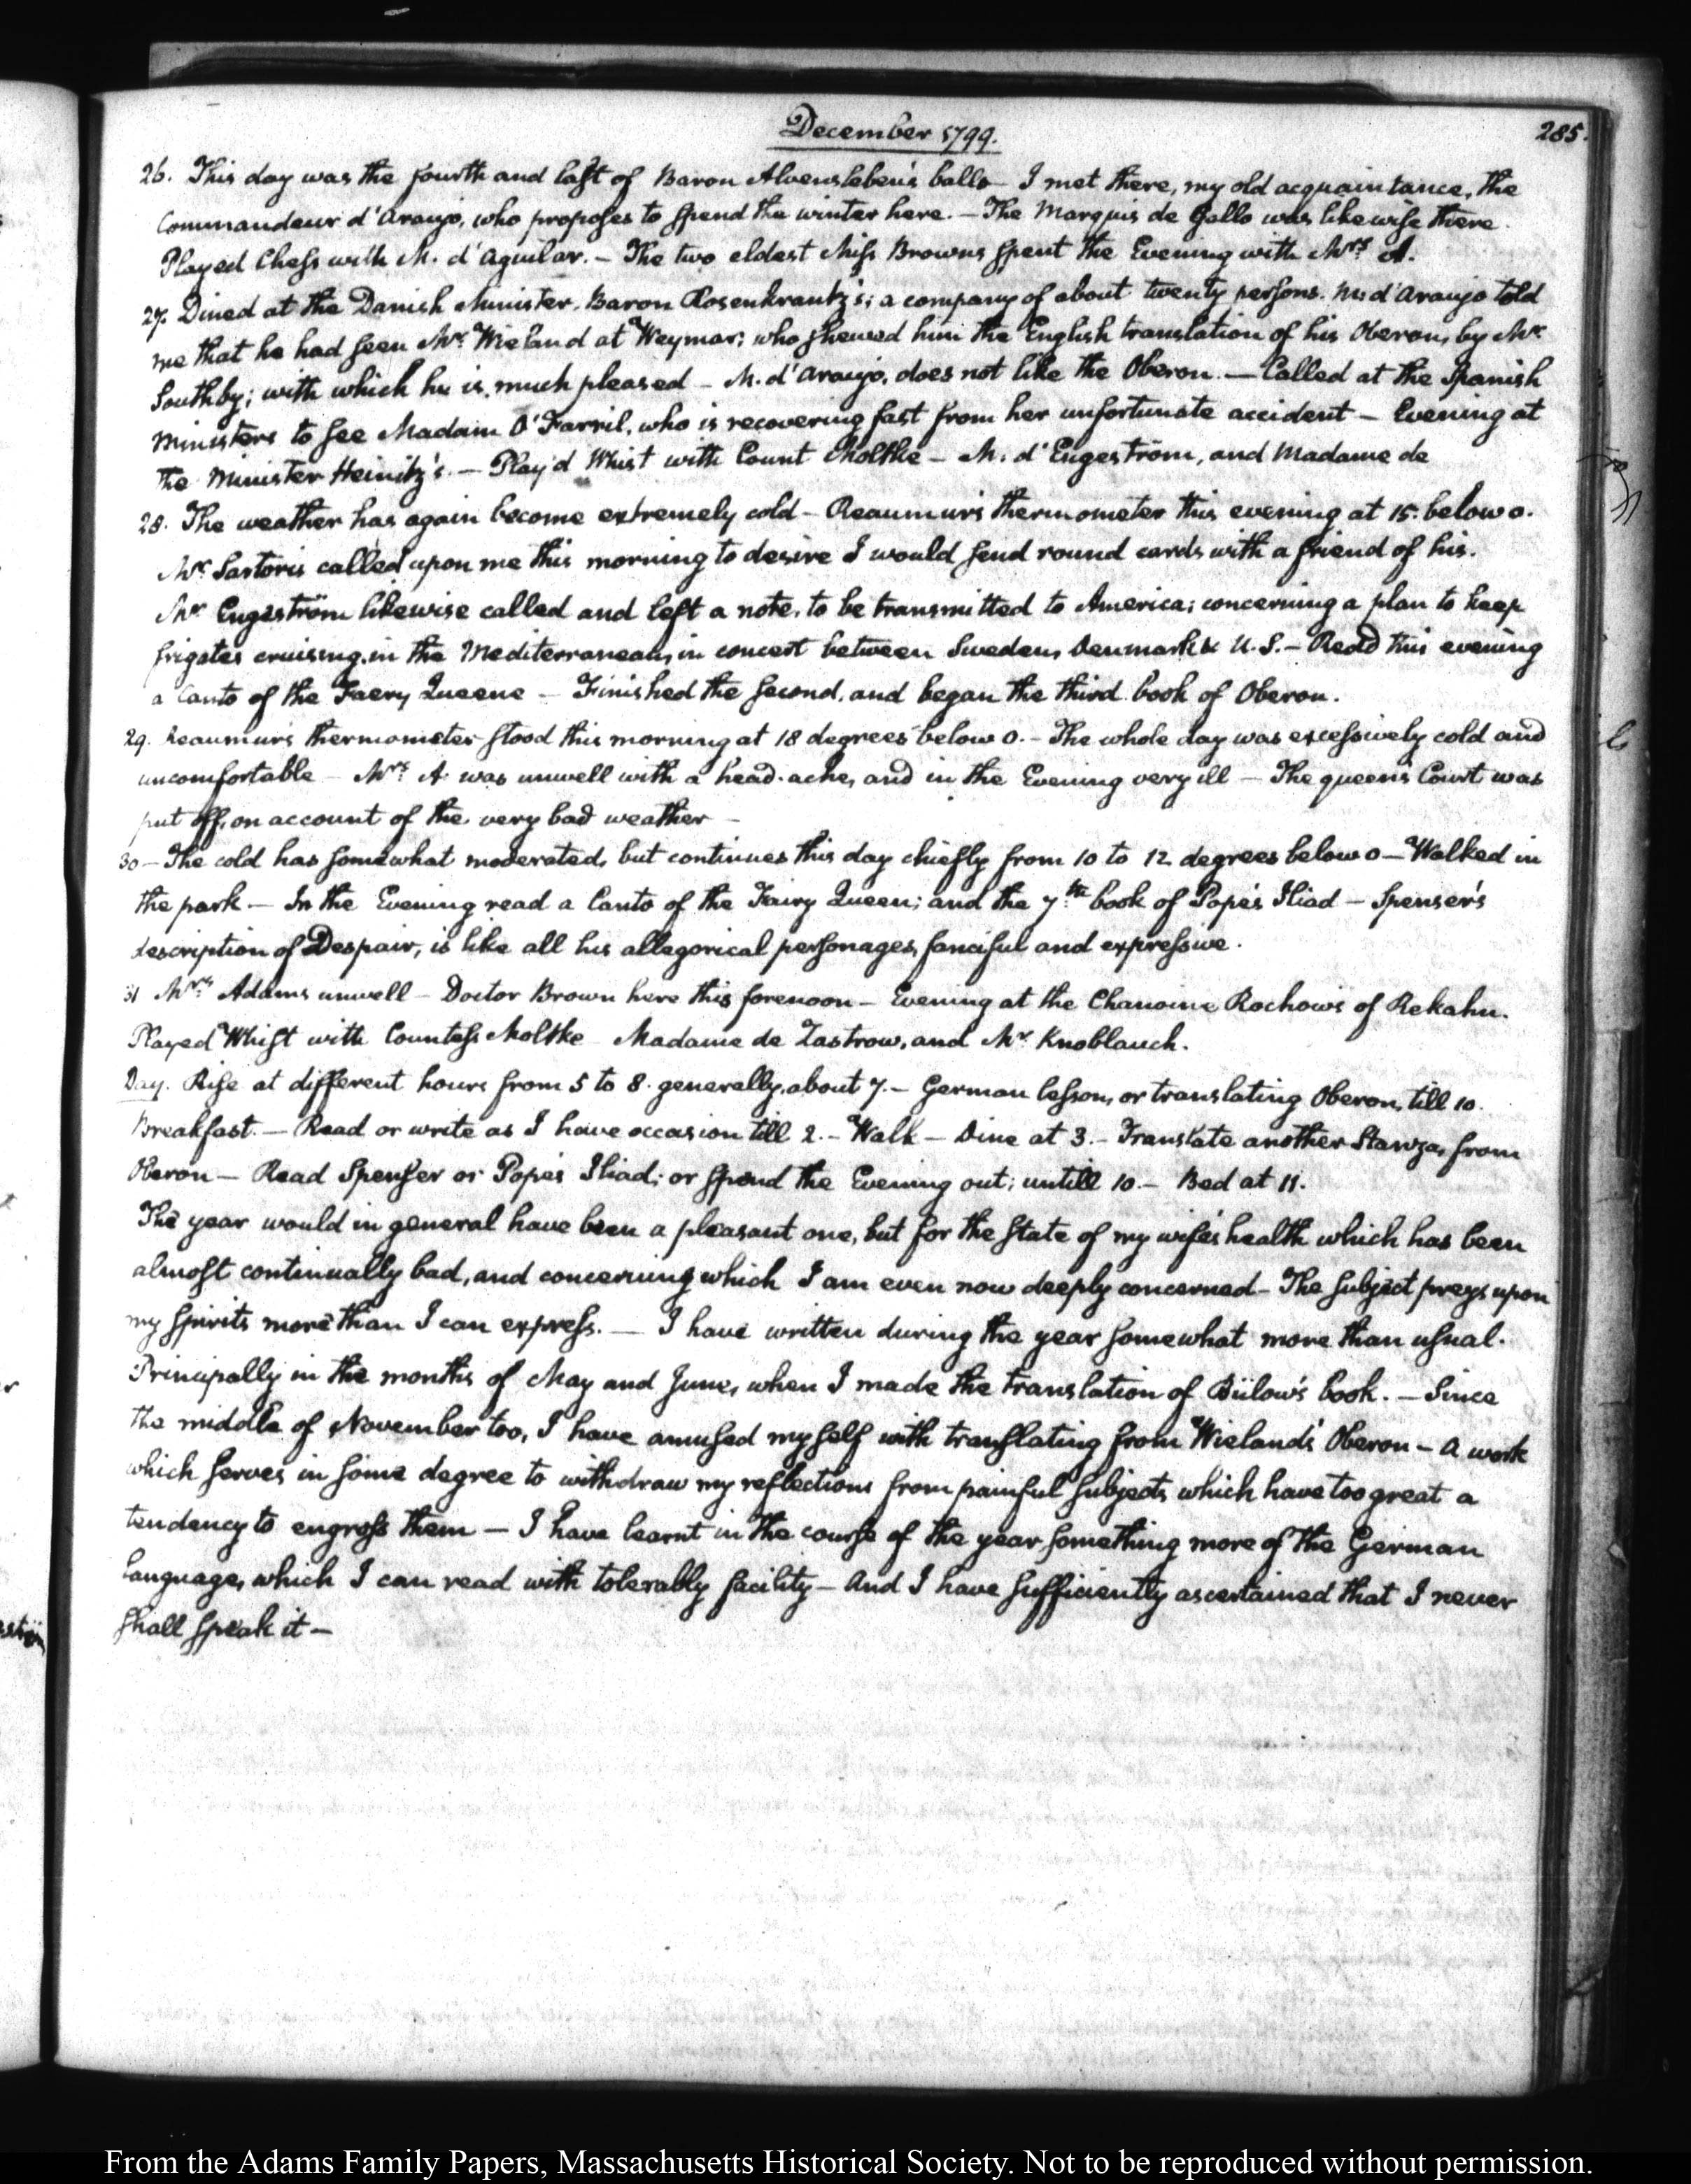 December 1799.
285.
26. This day was the fourth and last of Baron Alvensleben's balls — I met there, my old acquaintance, the
Commandeur d'Araujo, who proposes to spend the winter here. — The Marquis de Gallo was likewise there.
Played Chess with M. d'Aguilar. — The two eldest Miss Browns spent the Evening with Mrs. A.
27. Dined at the Danish Minister, Baron Rosenkrantz's; a company of about twenty persons. M. d'Araujo told
me that he had seen Mr. Wieland at Weymar; who shewed him the English translation of his Oberon, by Mr.
Southby; with which he is much pleased — M. d'Araujo, does not like the Oberon. — Called at the Spanish
Ministers to see Madam O'Farril, who is recovering fast from her unfortunate accident — Evening at
the Minister Heinitz's. — Play'd Whist with Count Moltke — M. d'Engeström, and Madame de
28. The weather has again become extremely cold — Reaumur's thermometer this evening at 15. below 0.
Mr. Sartoris called upon me this morning to desire I would send round cards with a friend of his.
Mr. Engeström likewise called and left a note, to be transmitted to America; concerning a plan to keep
frigates cruising in the Mediterranean, in concert between Sweden, Denmark & U.S. — Read this evening
a Canto of the Faery Queene — Finished the second, and began the third book of Oberon.
29. Reaumur's thermometer stood this morning at 18 degrees below 0. — The whole day was excessively cold and
uncomfortable — Mrs. A. was unwell with a head-ache, and in the Evening very ill — The queen's Court was
put off, on account of the very bad weather —
30 — The cold has somewhat moderated, but continues this day chiefly from 10 to 12 degrees below 0 — Walked in
the park — In the Evening read a Canto of the Fairy Queen; and the 7th. book of Pope's Iliad — Spenser's
description of Despair, is like all his allegorical personages, fanciful and expressive.
31 Mrs. Adams unwell — Doctor Brown here this forenoon — Evening at the Chanoine Rochow's of Rekahn.
Played Whist with Countess Moltke Madame de Zastrow, and Mr. Knoblauch.
Day. Rise at different hours from 5 to 8. generally, about 7. — German lesson, or translating Oberon, till 10.
Breakfast. — Read or write as I have occasion till 2. — Walk — Dine at 3. — Translate another Stanza, from
Oberon — Read Spenser or Pope's Iliad; or spend the Evening out; untill 10. — Bed at 11.
The year would in general have been a pleasant one, but for the state of my wife's health which has been
almost continually bad, and concerning which I am even now deeply concerned — The subject preys upon
my spirits more than I can express. — I have written during the year somewhat more than usual.
Principally in the months of May and June, when I made the translation of Bülow's book. — Since
the middle of November too, I have amused myself with translating from Wieland's Oberon — a work
which serves in some degree to withdraw my reflections from painful subjects which have too great a
tendency to engross them — I have learnt in the course of the year something more of the German
language, which I can read with tolerably facility — And I have sufficiently ascertained that I never
shall speak it —
From the Adams Family Papers, Massachusetts Historical Society. Not to be reproduced without permission.